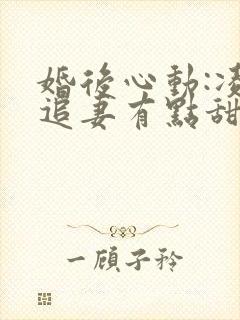 婚後心動:凌
追妻有點甜
一顧子衿